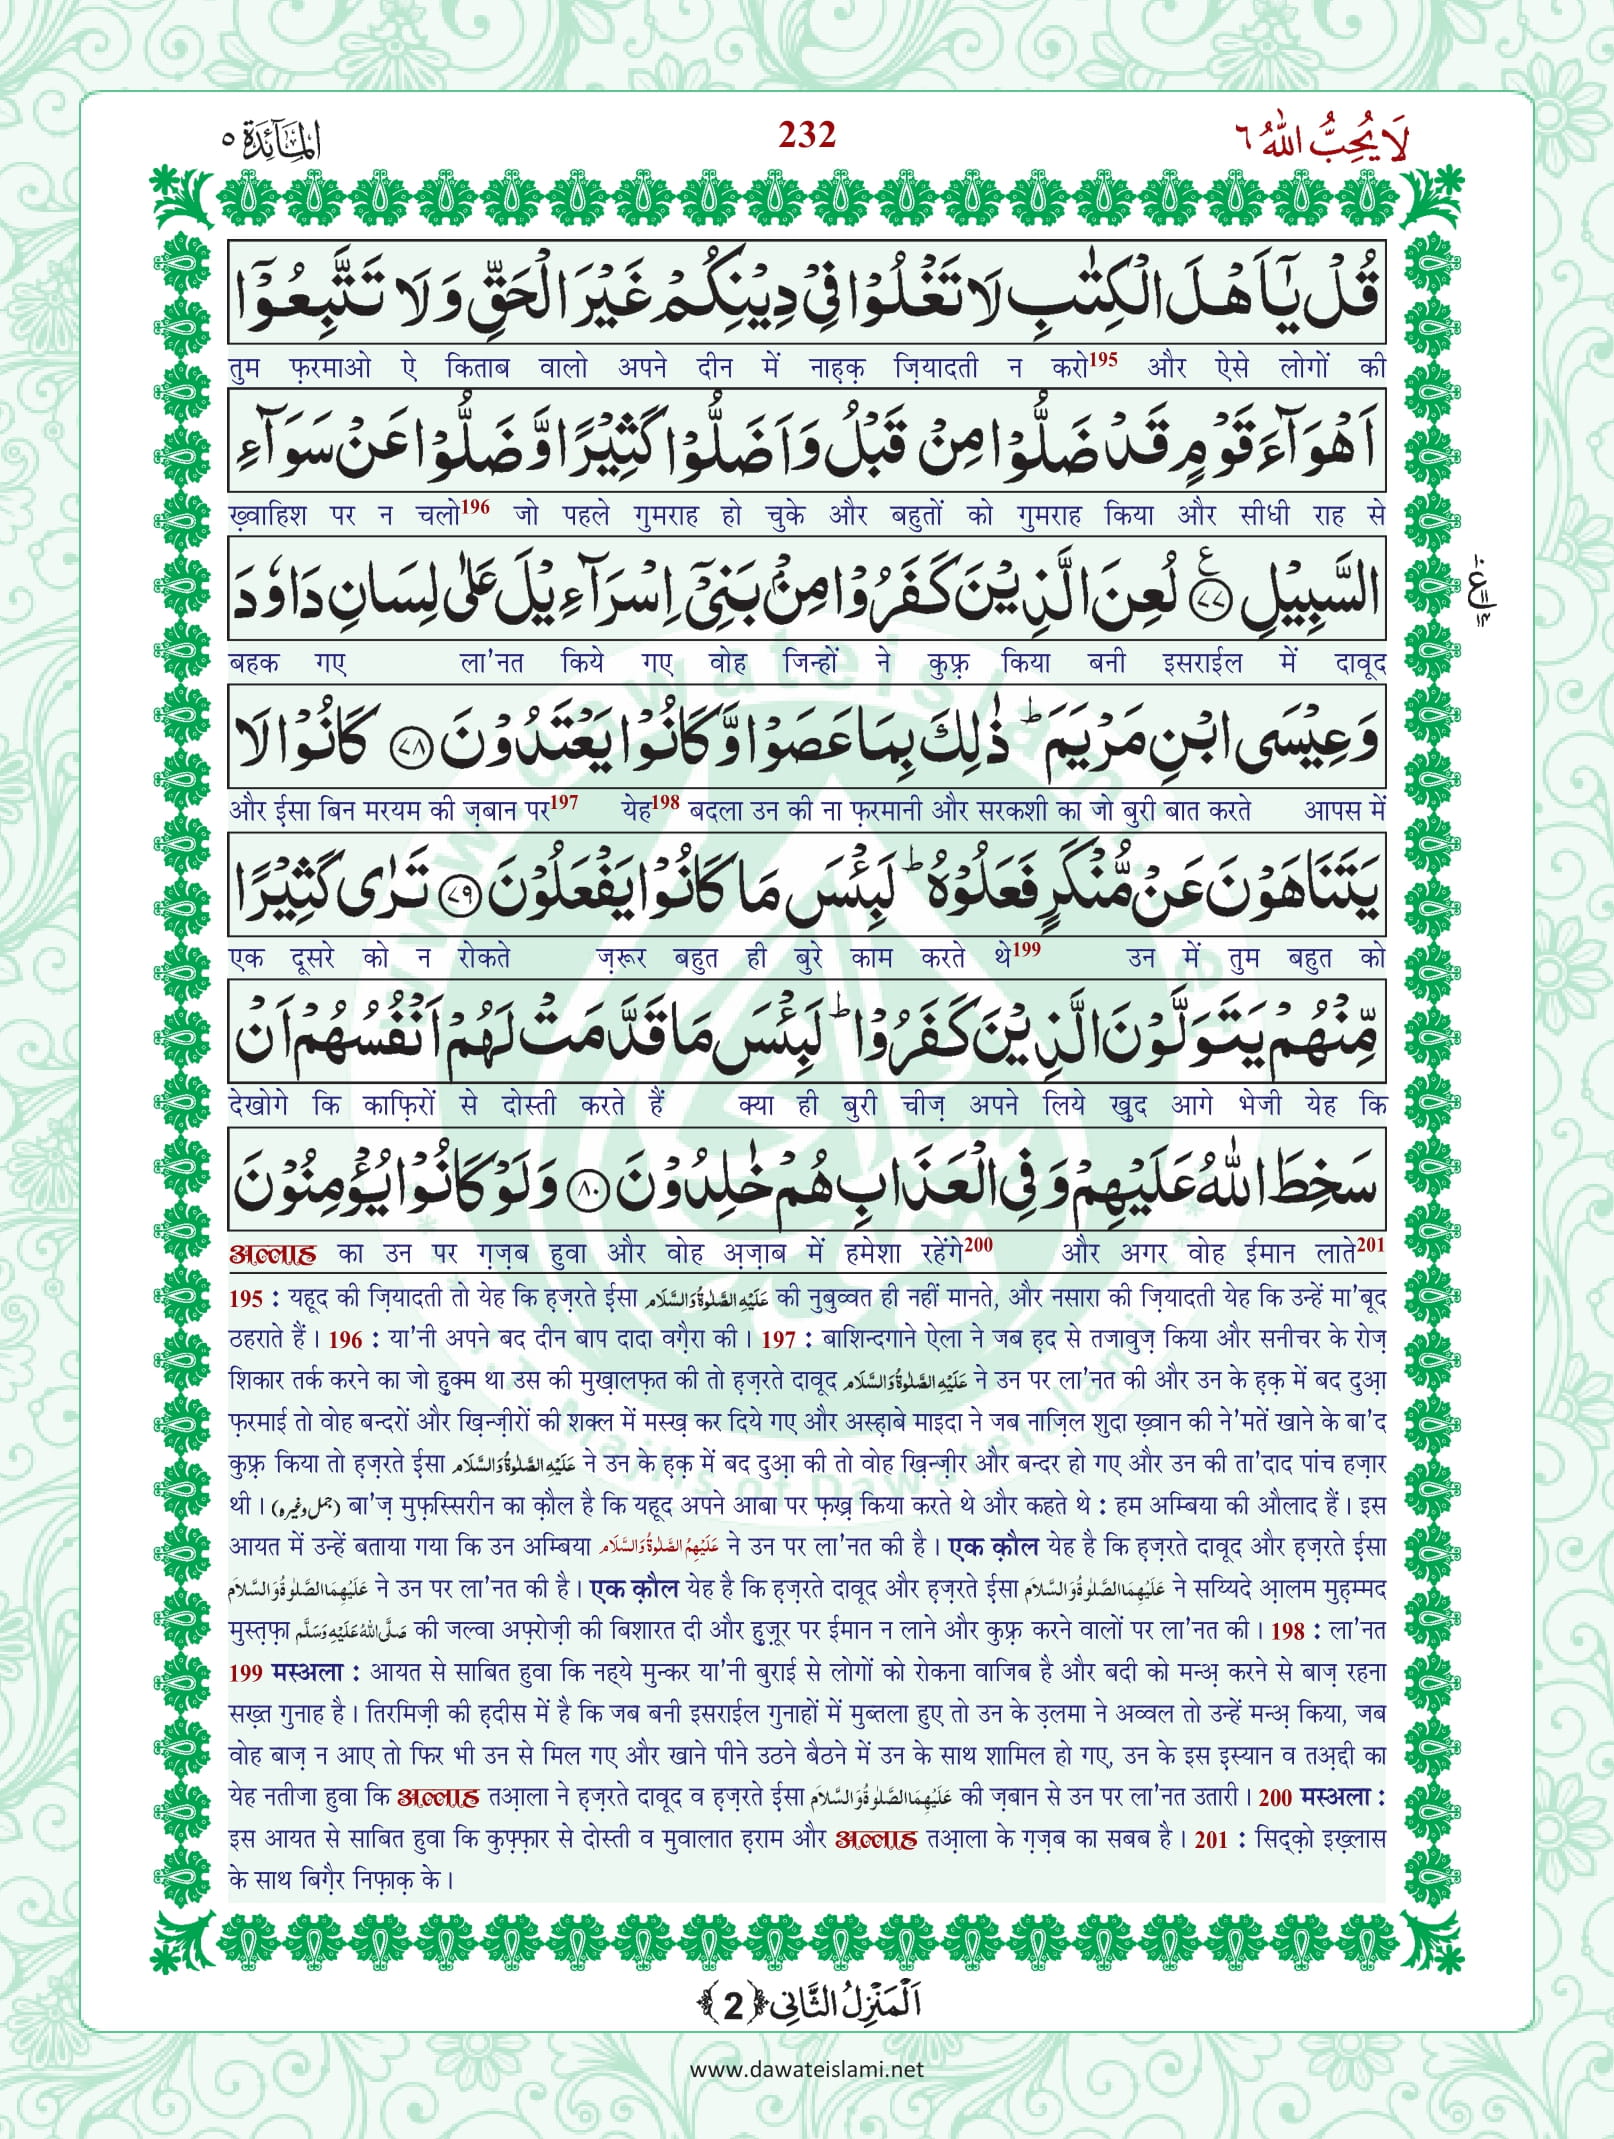 المآئدة ۵
232
لَا يُحِبُّ اللّٰهُ ٦
قُلْ يٰۤاَهْلَ الْكِتٰبِ لَا تَغْلُوْا فِيْ دِيْنِكُمْ غَيْرَ الْحَقِّ وَ لَا تَتَّبِعُوْۤا
तुम फ़रमाओ ऐ किताब वालो अपने दीन में नाह़क़ ज़ियादती न करो195 और ऐसे लोगों की
اَهْوَآءَ قَوْمٍ قَدْ ضَلُّوْا مِنْ قَبْلُ وَ اَضَلُّوْا كَثِيْرًا وَّ ضَلُّوْا عَنْ سَوَآءِ
ख़्वाहिश पर न चलो196 जो पहले गुमराह हो चुके और बहुतों को गुमराह किया और सीधी राह से
السَّبِيْلِ ﴿۷۷﴾ لُعِنَ الَّذِيْنَ كَفَرُوْا مِنْۢ بَنِيْۤ اِسْرَآءِيْلَ عَلٰى لِسَانِ دَاوٗدَ
बहक गए ला'नत किये गए वोह जिन्हों ने कुफ़्र किया बनी इसराईल में दावूद
وَ عِيْسَى ابْنِ مَرْيَمَ ؕ ذٰلِكَ بِمَا عَصَوْا وَّ كَانُوْا يَعْتَدُوْنَ ﴿۷۸﴾ كَانُوْا لَا
और ईसा बिन मरयम की ज़बान पर197 येह198 बदला उन की ना फ़रमानी और सरकशी का जो बुरी बात करते आपस में
يَتَنَاهَوْنَ عَنْ مُّنْكَرٍ فَعَلُوْهُ ؕ لَبِئْسَ مَا كَانُوْا يَفْعَلُوْنَ ﴿۷۹﴾ تَرٰى كَثِيْرًا
एक दूसरे को न रोकते ज़रूर बहुत ही बुरे काम करते थे199 उन में तुम बहुत को
مِّنْهُمْ يَتَوَلَّوْنَ الَّذِيْنَ كَفَرُوْا ؕ لَبِئْسَ مَا قَدَّمَتْ لَهُمْ اَنْفُسُهُمْ اَنْ
देखोगे कि काफ़िरों से दोस्ती करते हैं क्या ही बुरी चीज़ अपने लिये ख़ुद आगे भेजी येह कि
سَخِطَ اللّٰهُ عَلَيْهِمْ وَ فِي الْعَذَابِ هُمْ خٰلِدُوْنَ ﴿۸۰﴾ وَ لَوْ كَانُوْا يُؤْمِنُوْنَ
अल्लाह का उन पर ग़ज़ब हुवा और वोह अ़ज़ाब में हमेशा रहेंगे200 और अगर वोह ईमान लाते201
195 : यहूद की ज़ियादती तो येह कि ह़ज़रते ईसा عَلَيْهِ الصَّلٰوةُ وَالسَّلَام की नुबुव्वत ही नहीं मानते, और नसारा की ज़ियादती येह कि उन्हें मा'बूद
ठहराते हैं । 196 : या'नी अपने बद दीन बाप दादा वग़ैरा की । 197 : बाशिन्दगाने ऐला ने जब ह़द से तजावुज़ किया और सनीचर के रोज़
शिकार तर्क करने का जो हुक्म था उस की मुख़ालफ़त की तो ह़ज़रते दावूद عَلَيْهِ الصَّلٰوةُ وَالسَّلَام ने उन पर ला'नत की और उन के ह़क़ में बद दुआ़
फ़रमाई तो वोह बन्दरों और ख़िन्ज़ीरों की शक्ल में मस्ख़ कर दिये गए और अस्ह़ाबे माइदा ने जब नाज़िल शुदा ख़्वान की ने'मतें खाने के बा'द
कुफ़्र किया तो ह़ज़रते ईसा عَلَيْهِ الصَّلٰوةُ وَالسَّلَام ने उन के ह़क़ में बद दुआ़ की तो वोह ख़िन्ज़ीर और बन्दर हो गए और उन की ता'दाद पांच हज़ार
थी । (جمل وغیرہ) बा'ज़ मुफ़स्सिरीन का क़ौल है कि यहूद अपने आबा पर फ़ख़्र किया करते थे और कहते थे : हम अम्बिया की औलाद हैं । इस
आयत में उन्हें बताया गया कि उन अम्बिया عَلَيْهِمُ الصَّلٰوةُ وَالسَّلَام ने उन पर ला'नत की है । एक क़ौल येह है कि ह़ज़रते दावूद और ह़ज़रते ईसा
عَلَيْهِمَا الصَّلٰوةُ وَالسَّلَام ने उन पर ला'नत की है । एक क़ौल येह है कि ह़ज़रते दावूद और ह़ज़रते ईसा عَلَيْهِمَا الصَّلٰوةُ وَالسَّلَام ने सय्यिदे आ़लम मुह़म्मद
मुस्त़फ़ा صَلَّى اللهُ عَلَيْهِ وَسَلَّم की जल्वा अफ़्रोज़ी की बिशारत दी और हुज़ूर पर ईमान न लाने और कुफ़्र करने वालों पर ला'नत की । 198 : ला'नत
199 मस्अला : आयत से साबित हुवा कि नह्ये मुन्कर या'नी बुराई से लोगों को रोकना वाजिब है और बदी को मन्अ़ करने से बाज़ रहना
सख़्त गुनाह है । तिरमिज़ी की ह़दीस में है कि जब बनी इसराईल गुनाहों में मुब्तला हुए तो उन के उ़लमा ने अव्वल तो उन्हें मन्अ़ किया, जब
वोह बाज़ न आए तो फिर भी उन से मिल गए और खाने पीने उठने बैठने में उन के साथ शामिल हो गए, उन के इस इस्यान व तअ़द्दी का
येह नतीजा हुवा कि अल्लाह तआ़ला ने ह़ज़रते दावूद व ह़ज़रते ईसा عَلَيْهِمَا الصَّلٰوةُ وَالسَّلَام की ज़बान से उन पर ला'नत उतारी । 200 मस्अला :
इस आयत से साबित हुवा कि कुफ़्फ़ार से दोस्ती व मुवालात ह़राम और अल्लाह तआ़ला के ग़ज़ब का सबब है । 201 : सिद्क़ो इख़्लास
के साथ बिग़ैर निफ़ाक़ के ।
اَلْمَنْزِلُ الثَّانِي ﴿2﴾
www.dawateislami.net